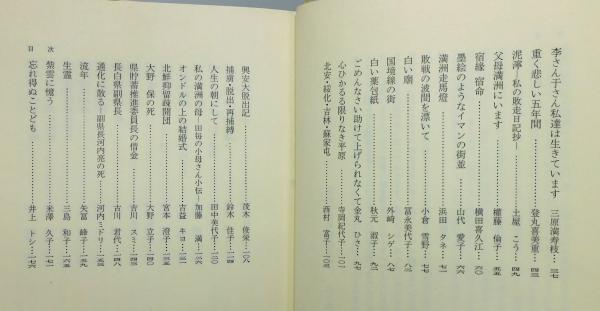 李さん于さん私達は生きています……三原満寿枝…三七
重く悲しい五年間……登丸喜美重…四三
泥濘―私の敗走日記抄―……土屋 こう…四九
父母満洲にいます……権藤 倫子…五五
宿縁 宿命……横田喜久江…六〇
墨絵のようなイマンの街並……山代 愛子…六六
満洲走馬燈……浜田 タネ…七一
敗戦の波間を漂いて……小倉 雪野…七六
白い廟……冨永美代子…八二
国境線の街……外崎 シゲ…八七
白い薬包紙……秋元 淑子…九二
ごめんなさい助けて上げられなくて金丸 ひさ…九七
心ひかるる限りなき平原……寺岡紀代子…一〇一
北安・綏化・吉林・蘇家屯……西村 富子…一〇三
興安大脱出記……茂木 俊栄…一〇八
捕虜・脱出・再捕縛……鈴木 佳子…一一四
人生の朝にして……田中美代子…一二〇
私の満洲の母―田毎の小母さん小伝―加藤 満…一二六
オンドルの上の結婚式……吉益 キヨ…一三一
北鮮抑留疎開団……宮本 澄子…一三五
大野 保の死……大野 立子…一三九
県貯蓄推進委員長の借金……吉川 スミ…一四三
長白県副県長……古川 君代…一四八
通化に散る―副県長河内亮の死―……河内ミドリ…一五三
流年……矢冨 峰子…一五九
生霊……三島 和子…一六五
紫雲に憶う……米澤 久子…一七一
忘れ得ぬことども……井上 トシ…一七六
目 次